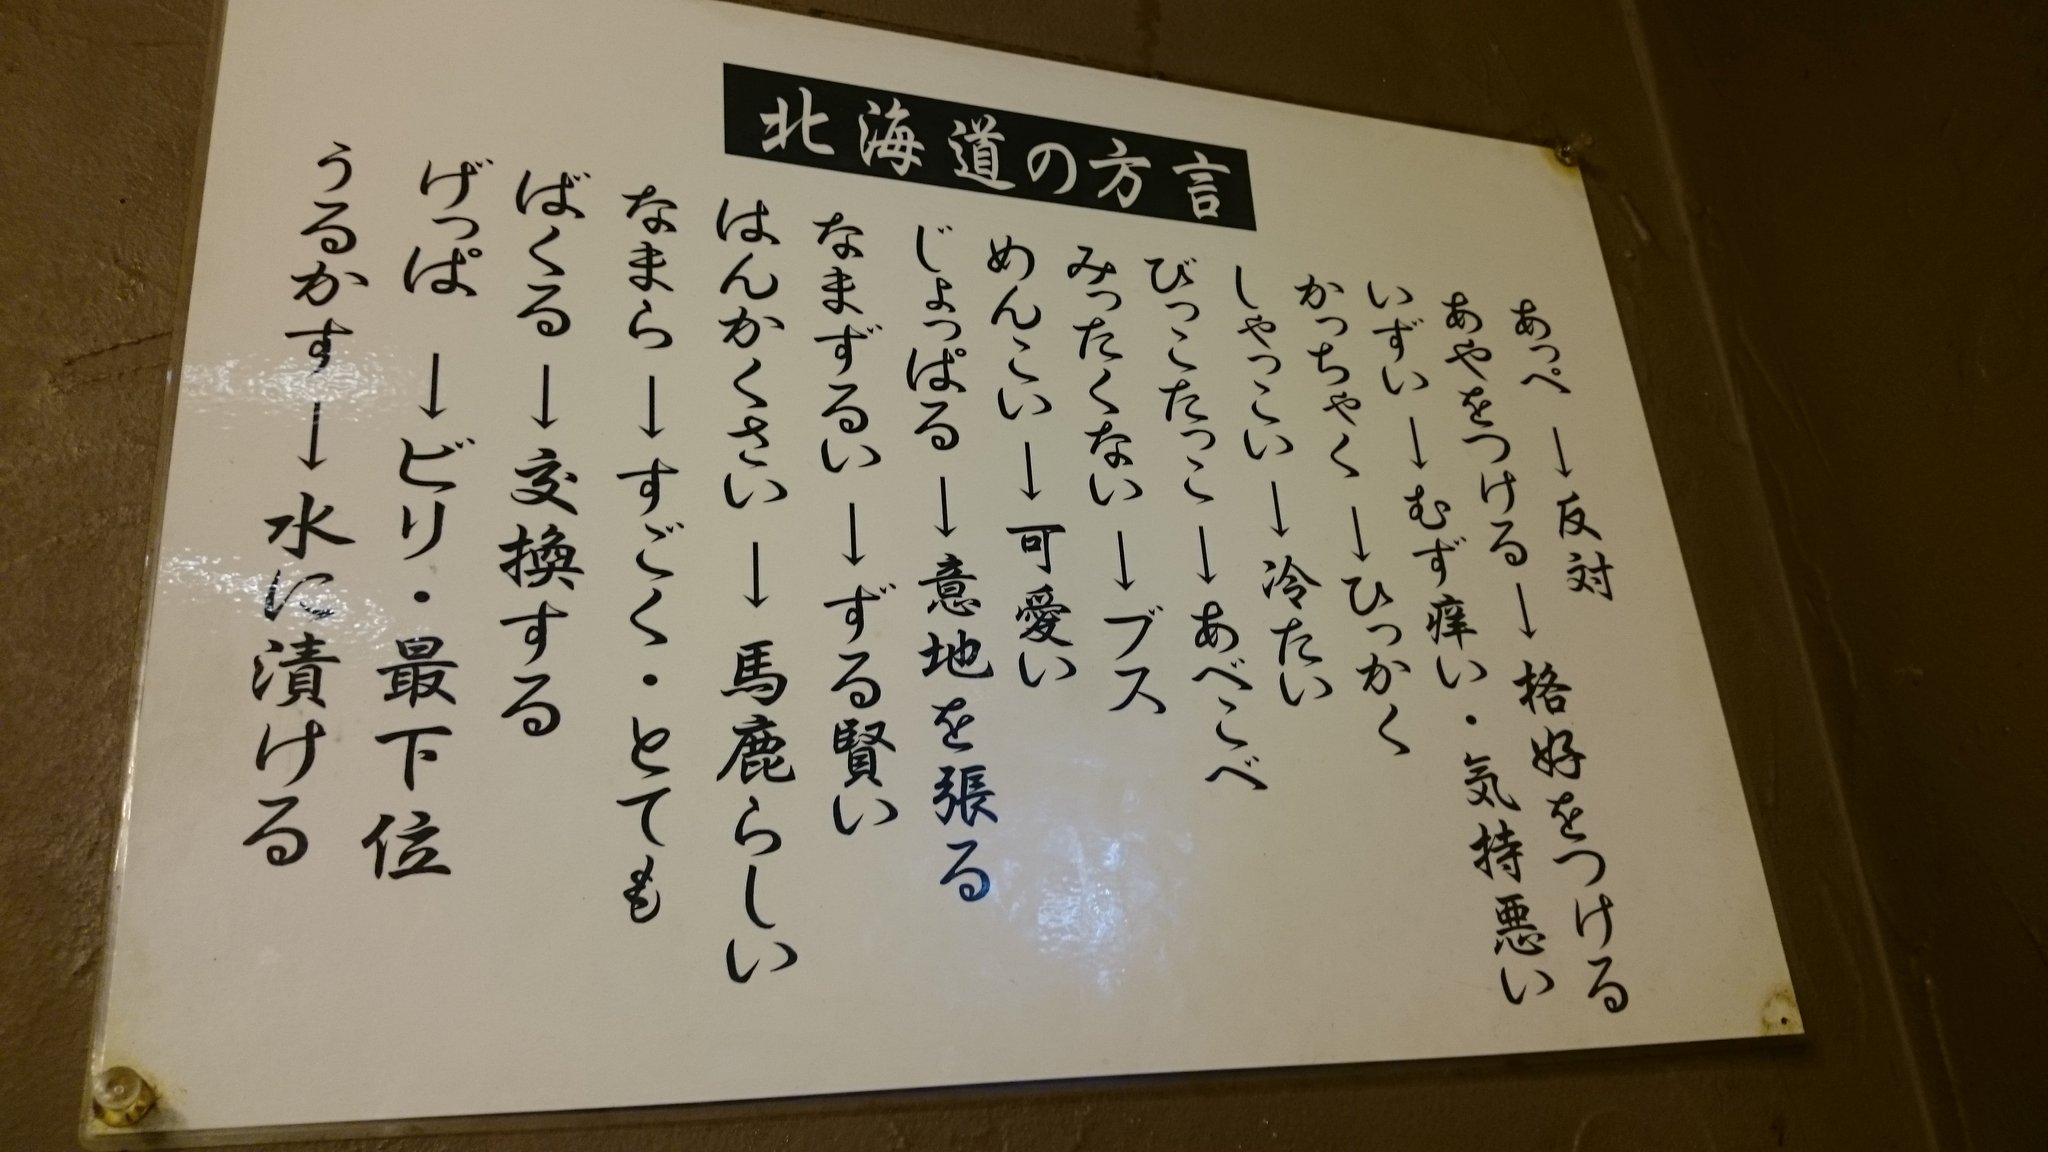 北海道の方言
あっぺ→反対
あやをつける→格好をつける
いずい→むず痒い・気持悪い
かっちゃく→ひっかく
しゃっこい→冷たい
びっこたっこ→あべこべ
みったくない→ブス
めんこい→可愛い
じょっぱる→意地を張る
なまずるい→ずる賢い
はんかくさい→馬鹿らしい
なまら→すごく・とても
ばくる→交換する
げっぱ→ビリ・最下位
うるかす→水に漬ける